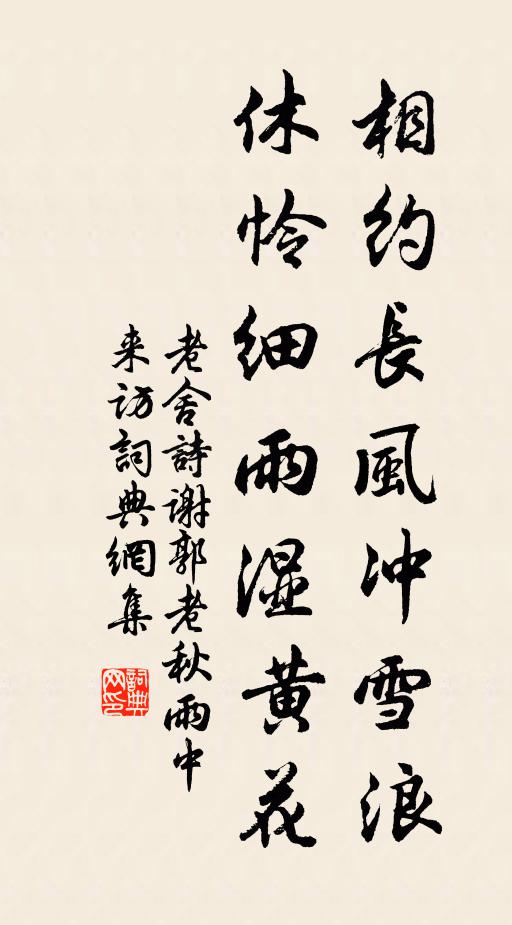 相約長風冲雪浪
休怜細雨湿黃花
老舍詩谢郭老秋雨中
来访詞典網集
詞典
网印